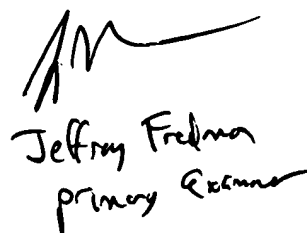 Jeffrey Fredman
primary Examiner